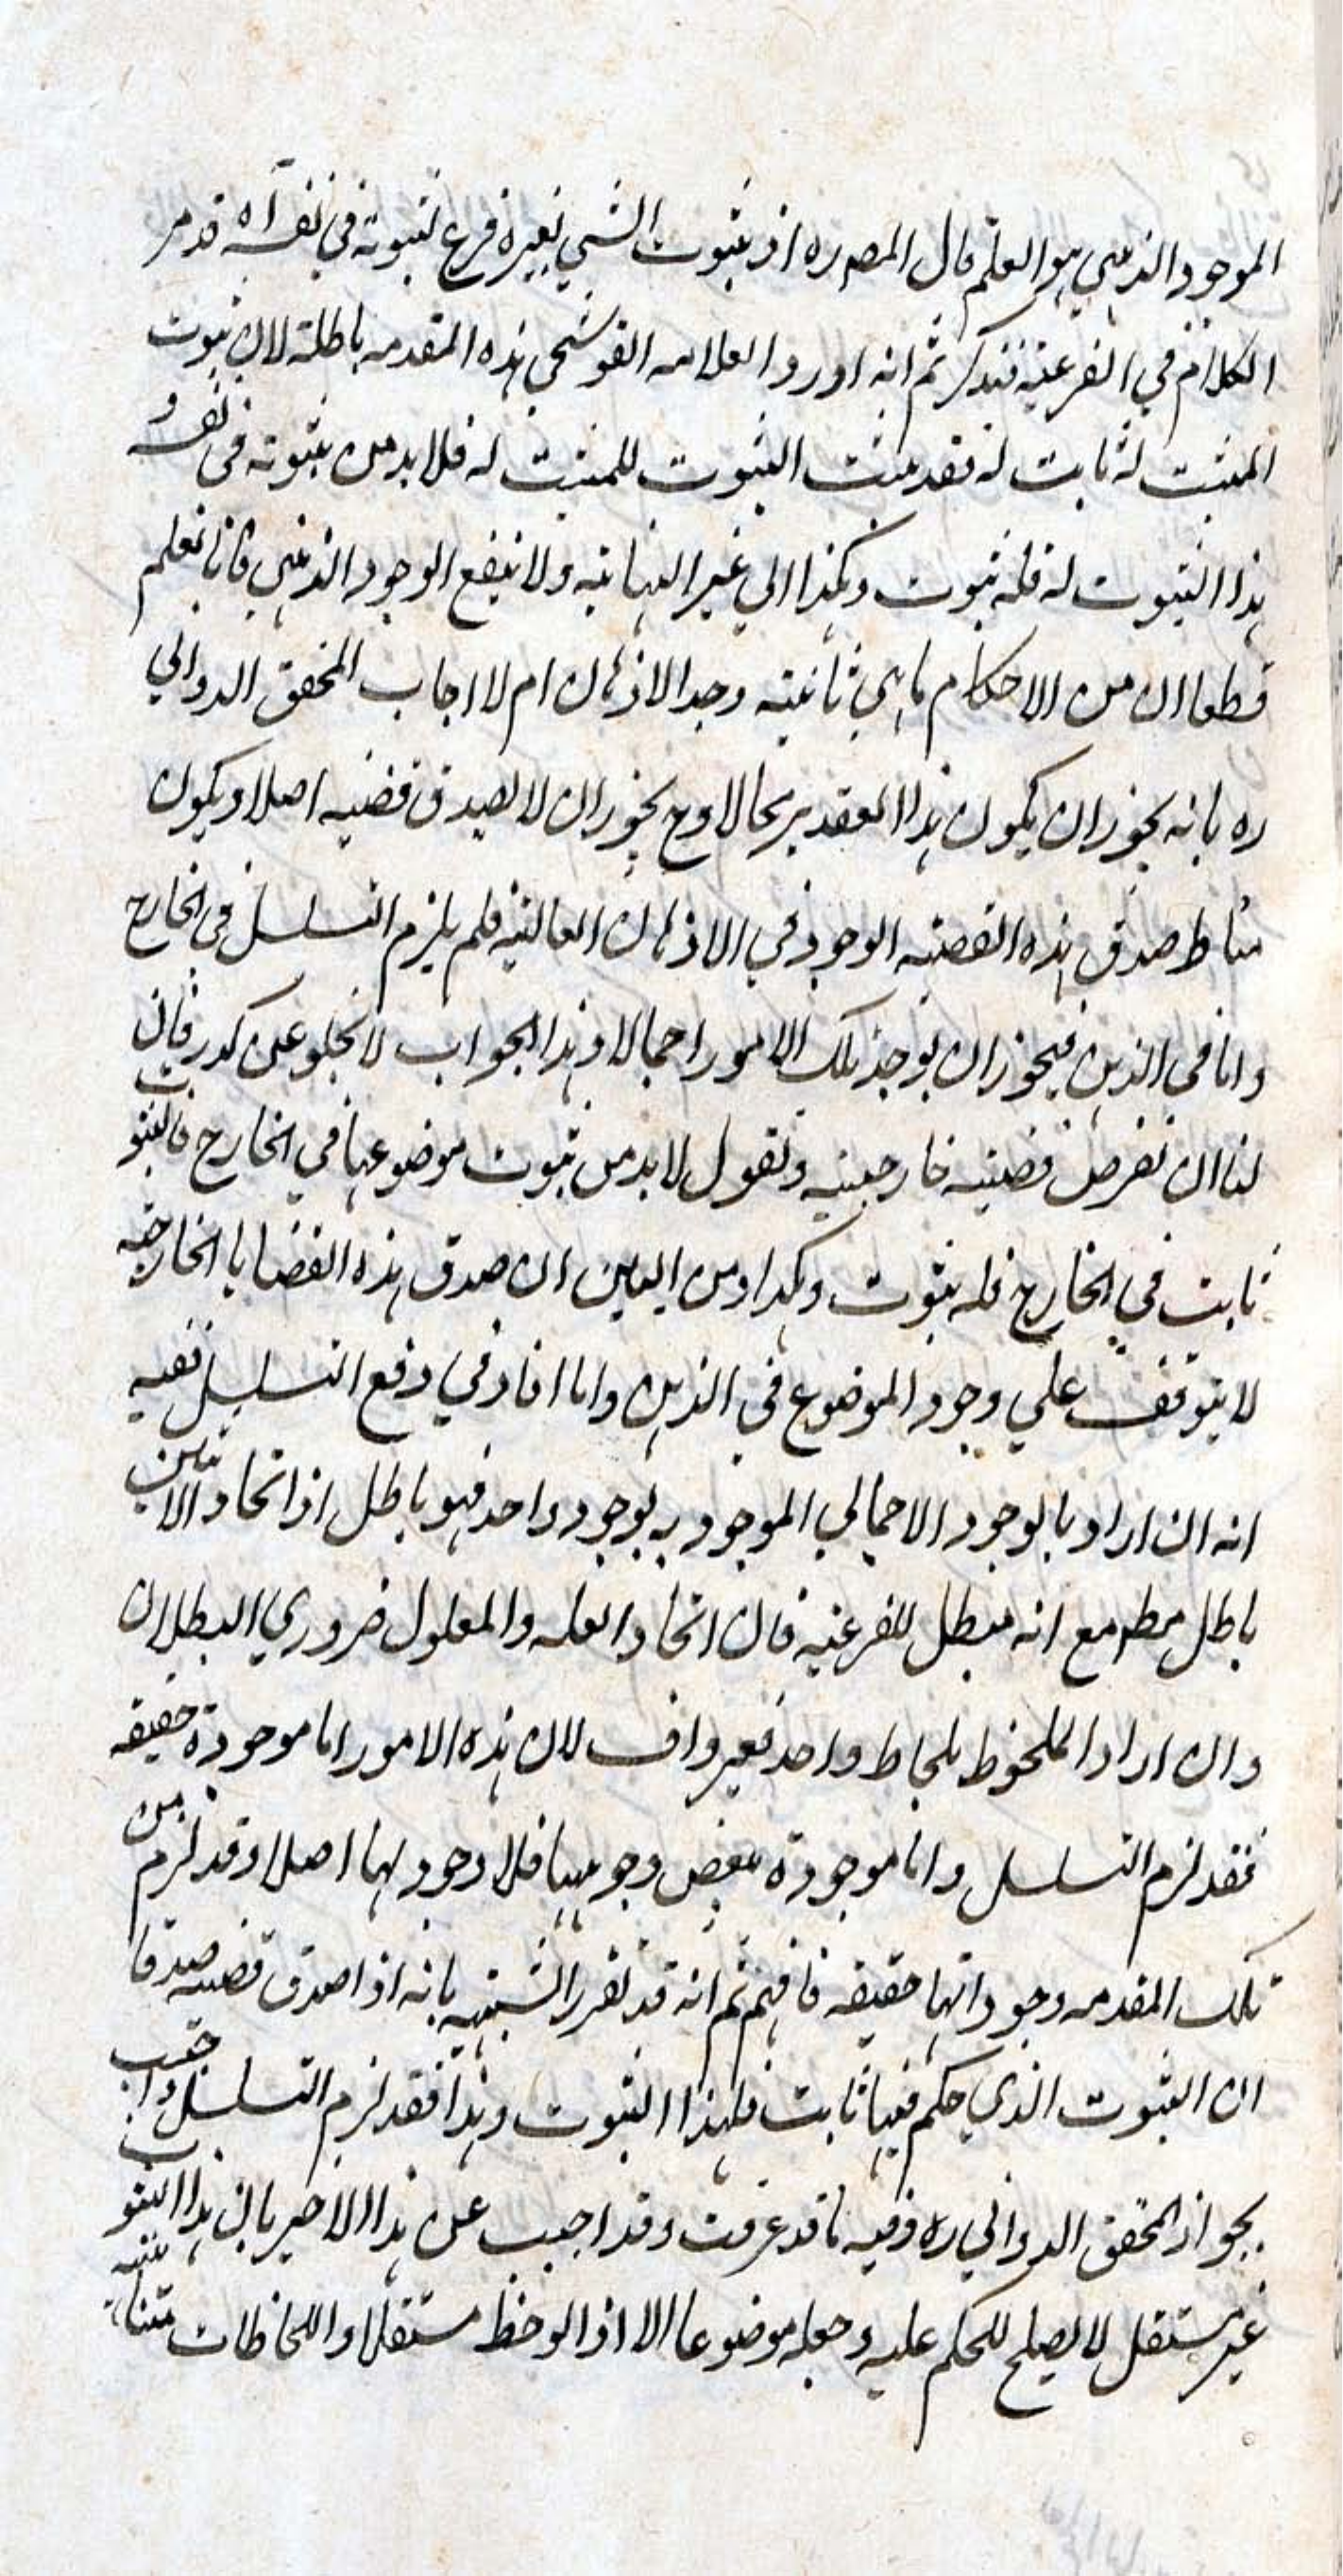 الموجود الذهني هو العلم قال المصره اذ ثبوت الشي لغيره فرع لثبوته في نفسه آه قد مر
الكلام في الفرعية فتذكر ثم انه اورد العلامه القوشجي هذه المقدمه باطلة لان ثبوت
المثبت له ثابت له فقد ثبت الثبوت للمثبت له فلا بد من ثبوته في نفسه و
هذا الثبوت له فله ثبوت وهكذا الي غير النهايته ولا ينفع الوجود الذهني فانا نعلم
قطعا ان من الاحكام ما هي ثابتة وجد الاذهان ام لا اجاب المحقق الدواني
ره بانه يجوز ان يكون هذا التقدير محالا وح يجوز ان لا يصدق قضيه اصلا ويكون
مناط صدق هذه القضيه الوجود في الاذهان العالية فلم يلزم التسلسل في الخارج
واما في الذهن فيجوز ان يوجد تلك الامور اجمالا وهذا الجواب لا يخلو عن كدر فان
لنا ان نفرض قضية خارجيه ونقول لا بد من ثبوت موضوعها في الخارج فالثبوت
ثابت في الخارج فله ثبوت وهكذا ومن البين ان صدق هذه القضايا الخارجيه
لا يتوقف علي وجود الموضوع في الذهن واما افاد في دفع التسلسل ففيه
انه ان اراد بالوجود الاجمالي الموجود به بوجود واحد فهو باطل اذ اتحاد الاثنين
باطل مطم مع انه مبطل للفرعيه فان اتحاد العله والمعلول ضروري البطلان
وان اراد الملحوظ بلحاظ واحد فغير واف لان هذه الامور اما موجودة حقيقه
فقد لزم التسلسل واما موجودة بفرض وجودها فلا وجود لها اصلا وقد لزم من
تلك المقدمه وجوداتها حقيقه فافهم ثم انه قد تقرر الشبهه بانه اذا صدق قضيه صدقا
ان الثبوت الذي حكم فيها ثابت فلهذا الثبوت وهذا فقد لزم التسلسل واجيب
بجواز المحقق الدواني ره وفيه ما قد عرفت وقد اجيب عن هذا الاخير بان هذا الثبوت
غير مستقل لا يصلح للحكم عليه وجعله موضوعا الا اذا لوحظ مستقلا واللحاظات متناهيه